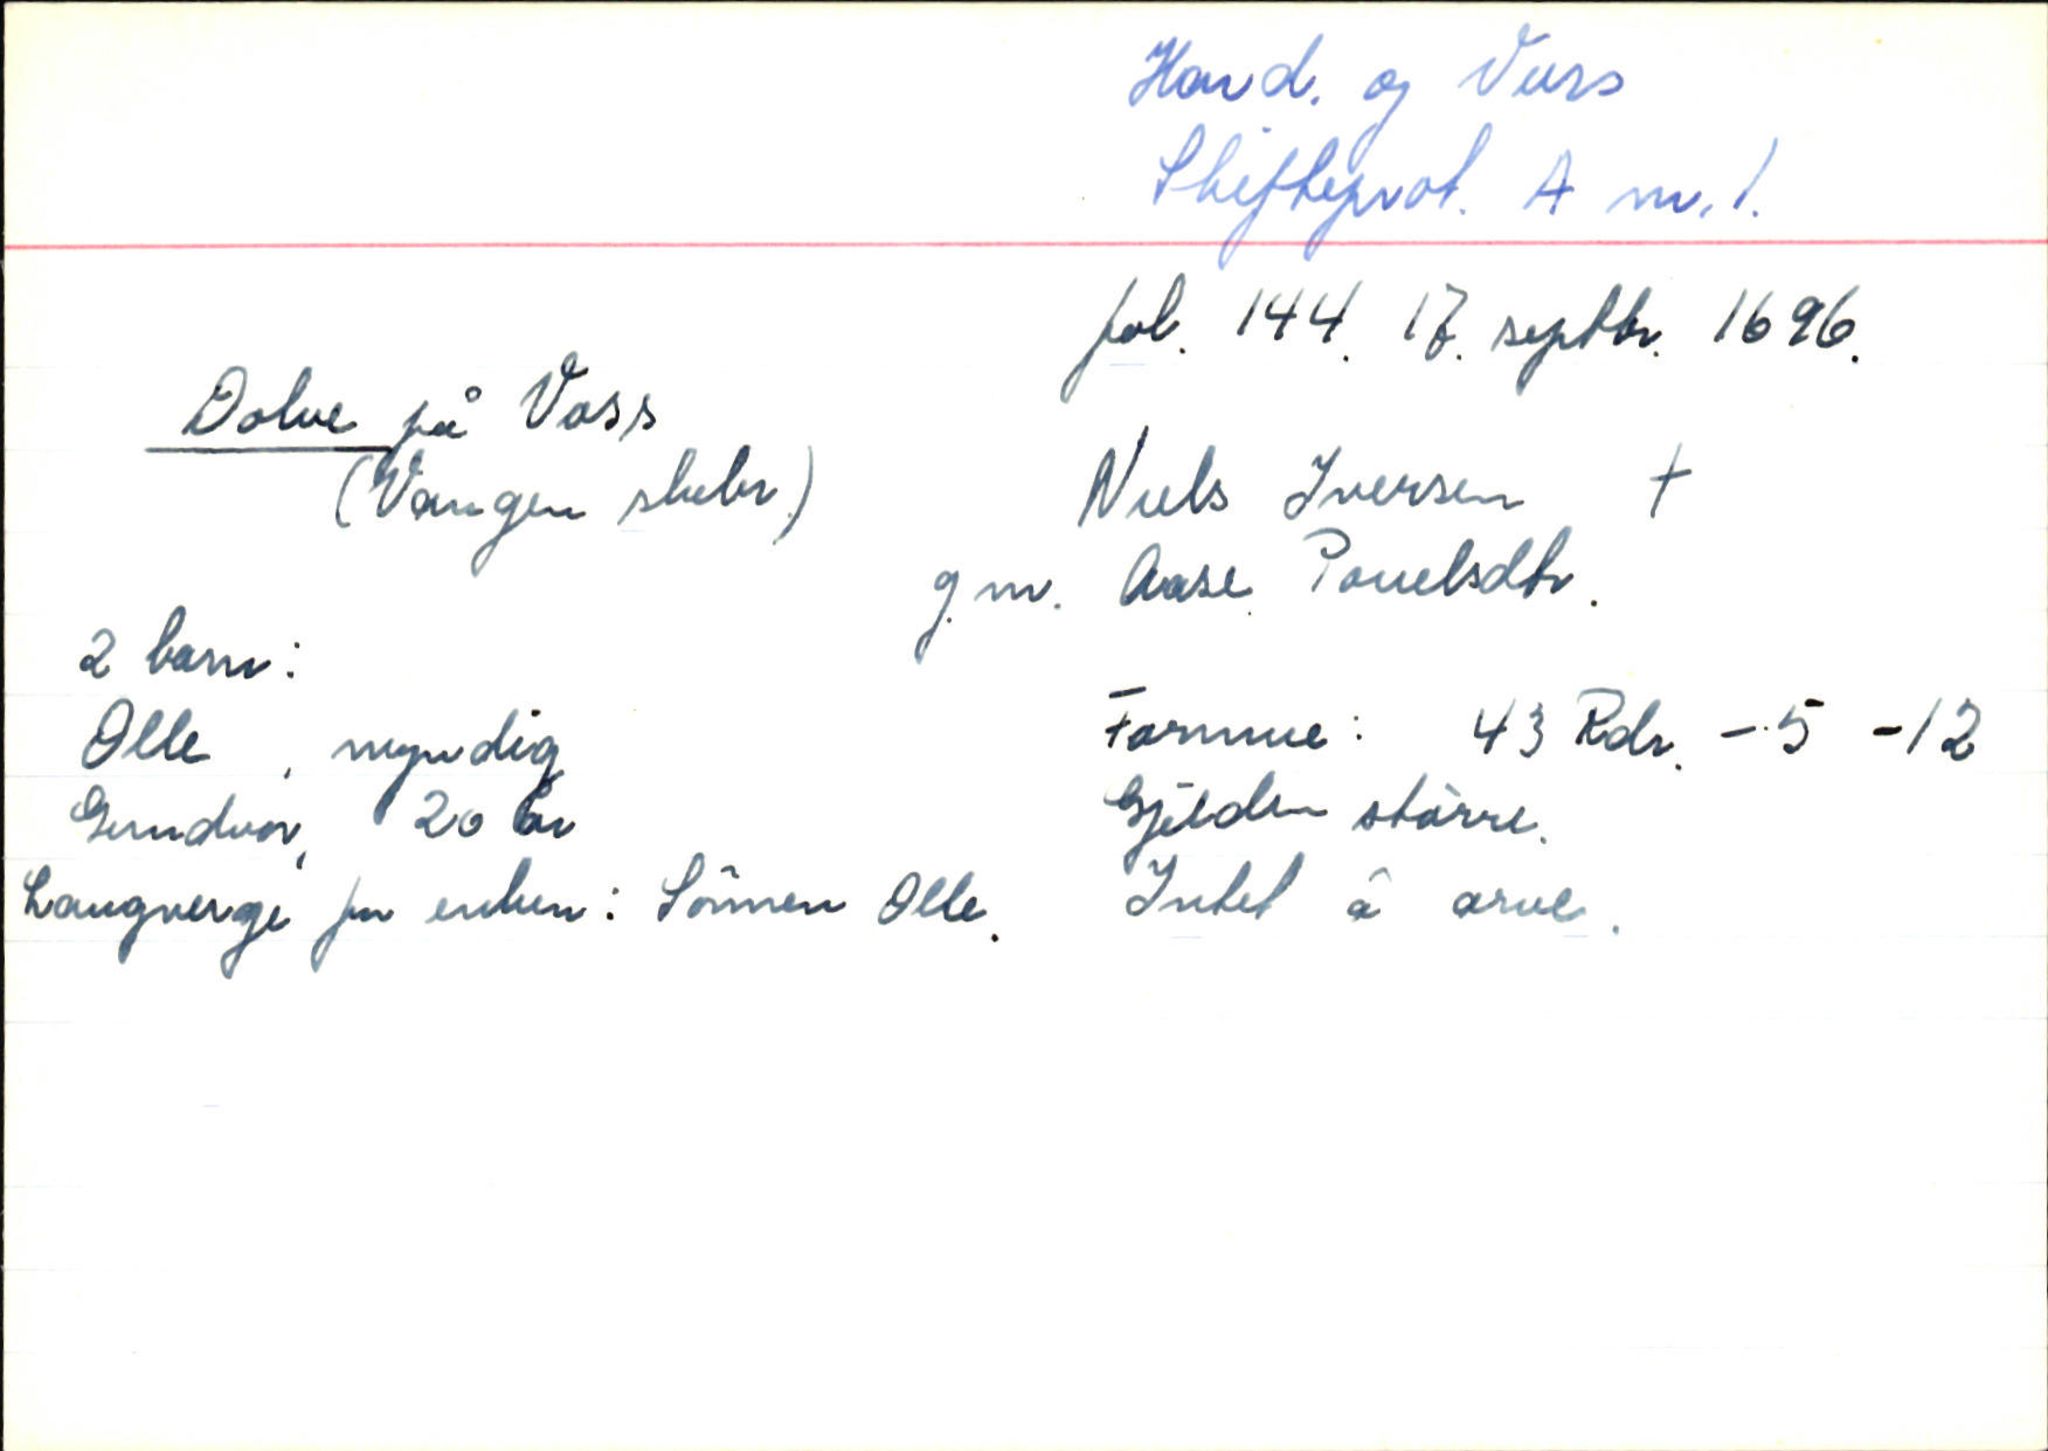 Hard. og Voss
Skifteprot. A nr. 1.
fol. 144. 17. septbr. 1696.
Dolve på Voss
(Vangen skibr.)
Niels Iversen †
g.m. Aase Pouelsdtr.
2 barn:
Olle, myndig
Gundvor, 20 år
Laugverge for enken: Sönnen Olle.
Formue: 43 Rdr. - 5 - 12
Gjelden större.
Intet å arve.